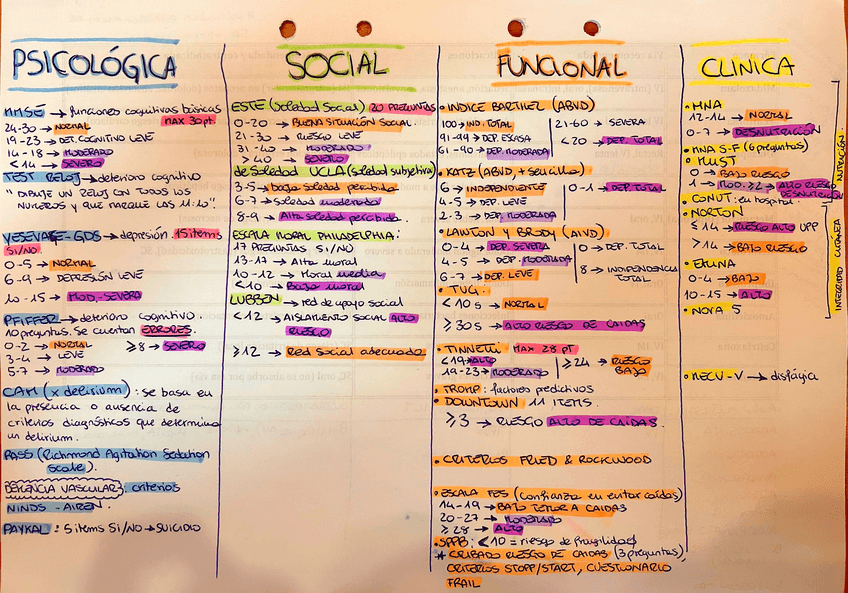 PSICOLÓGICA
MMSE → funciones cognitivas básicas
MAX 30pt.
24-30 → NORMAL
19-23 → DET. COGNITIVO LEVE
14-18 → MODERADO
<14 → SEVERO
TEST RELOJ → deterioro cognitivo
"DIBUJE UN RELOJ CON TODOS LOS
NUMEROS Y QUE MARQUE LAS 11:10".
GDS → depresión. 15 items
SI/NO.
0-5 → NORMAL
6-9 → DEPRESIÓN LEVE
10-15 → MOD-SEVERA
PFIFFER → deterioro cognitivo.
10 preguntas. Se cuentan ERRORES.
0-2 → NORMAL ≥8 → SEVERO
3-4 → LEVE
5-7 → MODERADO
CAM (x delirium): se basa en
la presencia o ausencia de
criterios diagnósticos que determina
un delirium.
RASS (Richmond Agitation Sedation
scale).
DEMENCIA VASCULAR: criterios
NINDS-AIREN.
PAYKAL: 5 items SI/NO → SUICIDIO
SOCIAL
ESTE (Soledad Social) 20 PREGUNTAS
0-20 → BUENA SITUACIÓN SOCIAL.
21-30 → RIESGO LEVE
31-40 → MODERADO
>40 → SEVERO
de Soledad UCLA (Soledad subjetiva)
3-5 → baja soledad percibida
6-7 → soledad moderada
8-9 → Alta soledad percibida.
ESCALA MORAL PHILADELPHIA:
17 PREGUNTAS SI/NO
13-17 → Alta moral
10-12 → Moral media
<10 → Baja moral
LUBBEN → red de apoyo social
<12 → AISLAMIENTO SOCIAL ALTO
RIESGO
≥12 → Red Social adecuada
FUNCIONAL
• INDICE BARTHEL (ABVD)
100 → IND. TOTAL 21-60 → SEVERA
91-99 → DEP. ESCASA <20 → DEP. TOTAL
61-90 → DEP. MODERADA
• KATZ (ABVD, + sencillo)
6 → INDEPENDIENTE 0-1 → DEP. TOTAL
4-5 → DEP. LEVE
2-3 → DEP. MODERADA
• LAWTON Y BRODY (AIVD)
0-4 → DEP. SEVERA 0 → DEP. TOTAL
4-5 → DEP. MODERADA 8 → INDEPENDENCIA
6-7 → DEP. LEVE TOTAL
• TUG.
<10 s → NORMAL
≥30 s → ALTO RIESGO DE CAIDAS
• TINNETI MAX 28 PT
<19 → ALTO ≥24 → RIESGO
19-23 → MODERADO BAJO
• TROMP: factores predictivos
• DOWNTOWN 11 ITEMS.
≥3 → RIESGO ALTO DE CAIDAS.
• CRITERIOS FRIED & ROCKWOOD
• ESCALA FES (confianza en evitar caídas)
14-19 → BAJO TEMOR A CAIDAS
20-27 → MODERADO
≥28 → ALTO
• SPPB: <10 = riesgo de fragilidad
* CRIBADO RIESGO DE CAIDAS (3 preguntas),
CRITERIOS STOPP/START, CUESTIONARIO
FRAIL
CLINICA
• MNA
12-14 → NORMAL
0-7 → DESNUTRICIÓN
• MNA S-F (6 preguntas)
• MUST
0 → BAJO RIESGO
1 → MOD. ≥2 → ALTO RIESGO
DESNUTRICIÓN
• CONUT: en hospital.
NUTRICIÓN
• NORTON
≤14 → RIESGO ALTO UPP
>14 → BAJO RIESGO
• EMINA
0-4 → BAJO
10-15 → ALTO
• NOVA 5
INTEGRIDAD CUTÁNEA
• MECV-V → disfagia